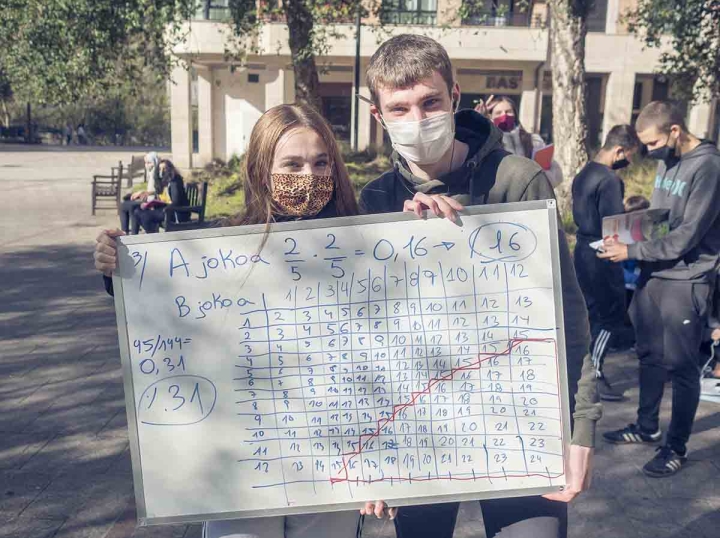 BAS
3) A jokoa 2/5 · 2/5 = 0,16 → %16
B jokoa 1 2 3 4 5 6 7 8 9 10 11 12
1 2 3 4 5 6 7 8 9 10 11 12 13
2 3 4 5 6 7 8 9 10 11 12 13 14
3 4 5 6 7 8 9 10 11 12 13 14 15
4 5 6 7 8 9 10 11 12 13 14 15 16
5 6 7 8 9 10 11 12 13 14 15 16 17
6 7 8 9 10 11 12 13 14 15 16 17 18
7 8 9 10 11 12 13 14 15 16 17 18 19
8 9 10 11 12 13 14 15 16 17 18 19 20
9 10 11 12 13 14 15 16 17 18 19 20 21
10 11 12 13 14 15 16 17 18 19 20 21 22
11 12 13 14 15 16 17 18 19 20 21 22 23
12 13 14 15 16 17 18 19 20 21 22 23 24
45/144=
0,31
%31